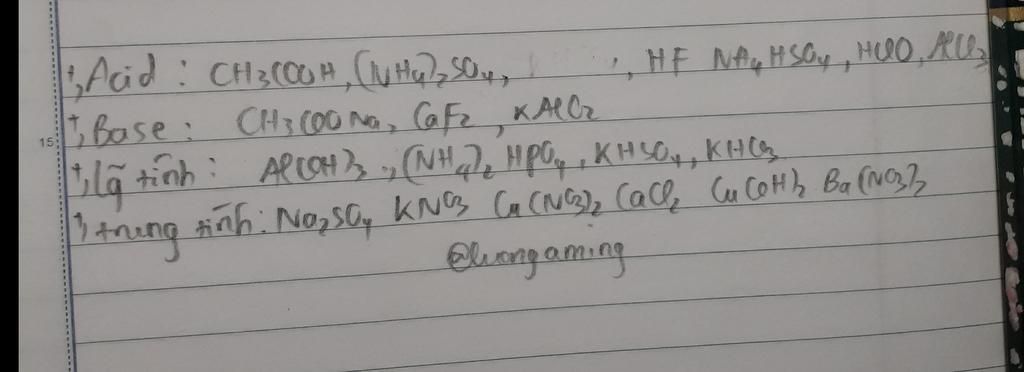 +, Acid : CH3COOH, (NH4)2SO4, , HF NH4HSO4, HClO, AlCl3
15 +, Base : CH3COONa, CaF2, KAlO2
+, lg tính : Al(OH)3, (NH4)2 HPO4, KHSO4, KHCO3
+, trung tính : Na2SO4 KNO3 Cu(NO3)2 CaCl2 Cu(OH)2 Ba(NO3)2
@luongaming